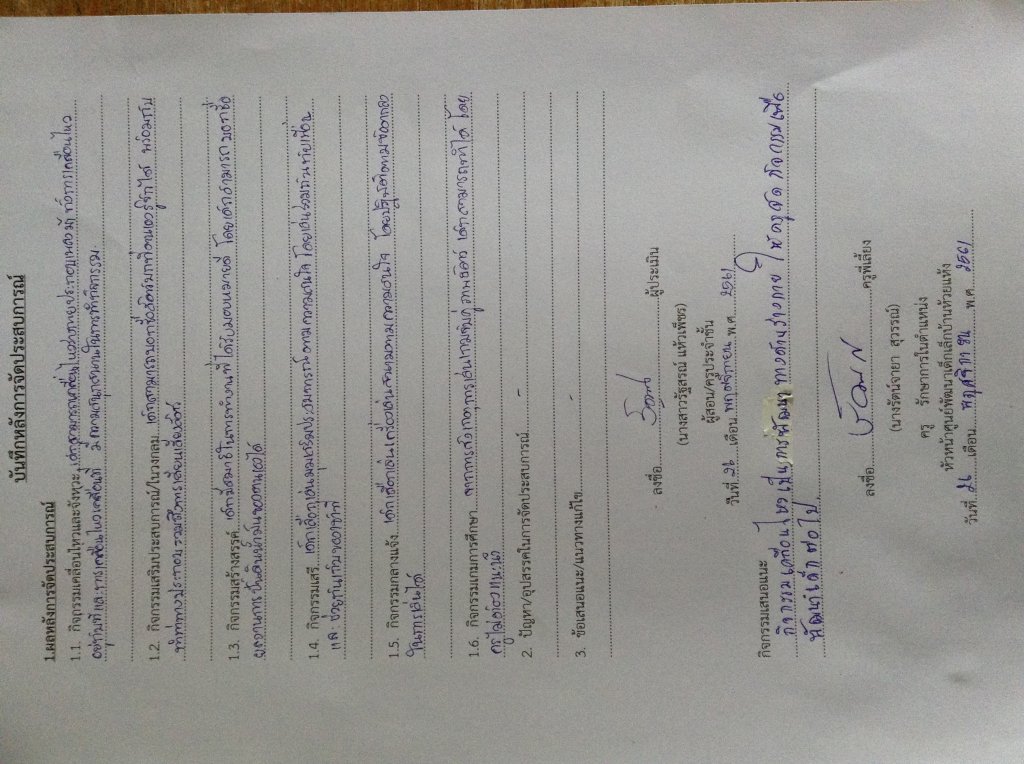 บันทึกหลังการจัดประสบการณ์
1.ผลหลังการจัดประสบการณ์
1.1. กิจกรรมเคลื่อนไหวและจังหวะ เด็กสามารถเคลื่อนไหวร่างกายประกอบเพลง ทั้งการเคลื่อนไหว
อยู่กับที่และการเคลื่อนไหวเคลื่อนที่ มีความสนุกสนานในการทำกิจกรรม
1.2. กิจกรรมเสริมประสบการณ์/ในวงกลม เด็กสามารถบอกชื่อสัตว์บกที่ตนเองรู้จักได้ พร้อมกับ
ทำท่าทางประกอบ รวมถึงการเลียนเสียงสัตว์
1.3. กิจกรรมสร้างสรรค์ เด็กมีสมาธิในการทำงานที่ได้รับมอบหมายดี โดยเด็กสามารถบอกชื่อ
ผลงานการปั้นดินน้ำมันของตนเองได้
1.4. กิจกรรมเสรี เด็กเลือกเล่นมุมเสริมประสบการณ์ตามความสนใจ โดยเล่นร่วมกันกับเพื่อน
และ ช่วยกันเก็บของเข้าที่
1.5. กิจกรรมกลางแจ้ง เด็กเลือกเล่นเครื่องเล่นสนามตามความสนใจ โดยปฏิบัติตามข้อตกลง
ในการเล่นได้
1.6. กิจกรรมเกมการศึกษา จากการสังเกตการเล่นเกมจับคู่ภาพสัตว์ เด็กสามารถทำได้ โดย
ครูไม่ต้องแนะนำ
2. ปัญหา/อุปสรรคในการจัดประสบการณ์ -
3. ข้อเสนอแนะ/แนวทางแก้ไข -
ลงชื่อ ผู้ประเมิน
(นางสาวรัฐสรณ์ แห้วเพ็ชร)
ผู้สอน/ครูประจำชั้น
วันที่ 26 เดือน พฤศจิกายน พ.ศ. 2561
กิจกรรมเสนอแนะ
กิจกรรมเคลื่อนไหว เป็นการพัฒนาทางด้านร่างกาย ให้ครูจัด กิจกรรมเพื่อ
พัฒนาเด็กต่อไป
ลงชื่อ ครูพี่เลี้ยง
(นางรัตน์จายา สุวรรณ์)
ครู รักษาการในตำแหน่ง
หัวหน้าศูนย์พัฒนาเด็กเล็กบ้านห้วยแห้ง
วันที่ 26 เดือน พฤศจิกายน พ.ศ. 2561